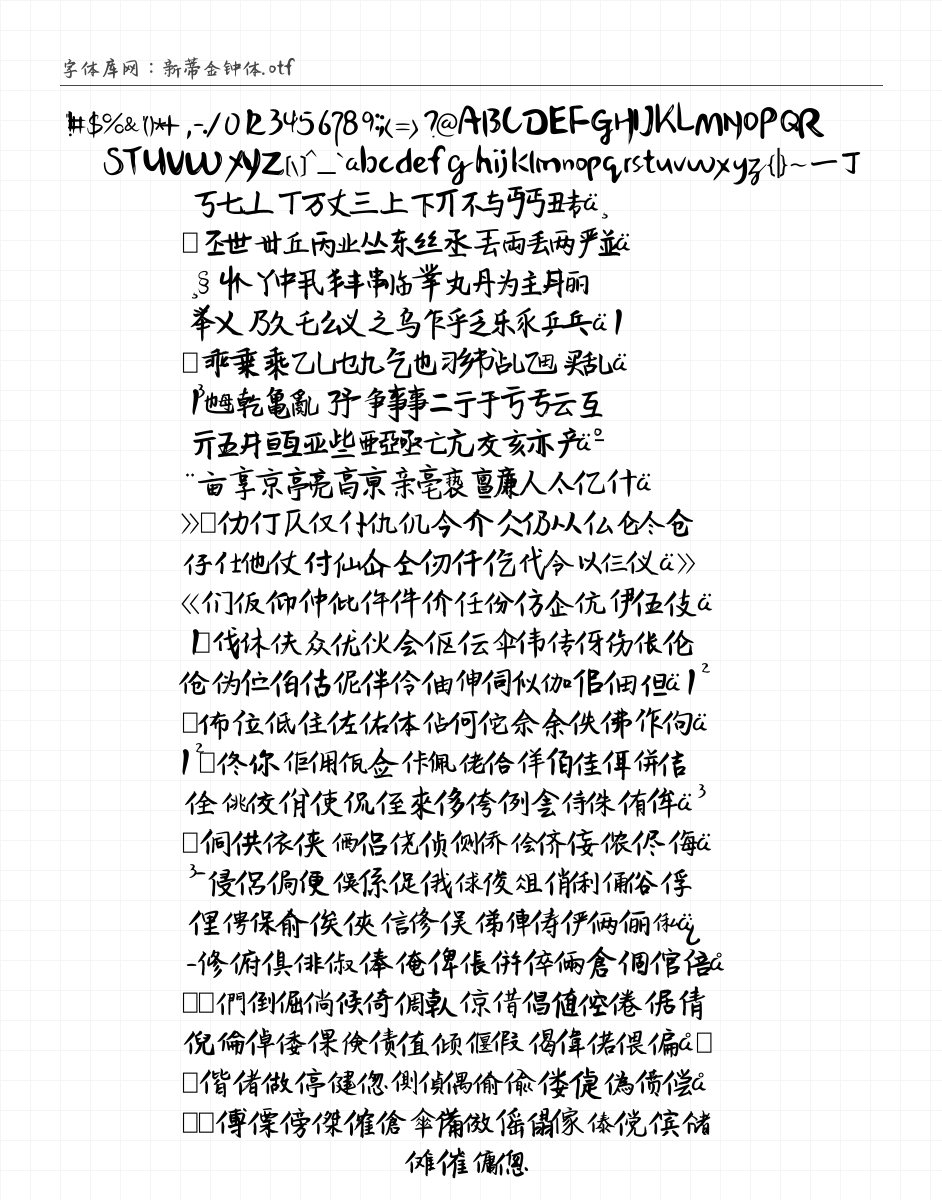 字体库网：新蒂金钟体.otf
!"#$%&'()*+,-./0123456789:;<=>?@ABCDEFGHIJKLMNOPQR
STUVWXYZ[\]^_`abcdefghijklmnopqrstuvwxyz{|}~一丁
丂七丄丅万丈三上下丌不与丏丐丑专ä¸
□丕世丗丘丙业丛东丝丞丟両丢两严並ä
¸§丩个丫中丮丯丰串临丵丸丹为主丼丽
举乂乃久乇么义之乌乍乎乏乐乑乒乓ä¹
□乖乗乘乙乚乜九乞也习乡乩乪买乱ä
¹³乸乹乾亀亂亅予争亊事二亍于亏亐云互
亓五井亘亙亚些亜亞亟亡亢交亥亦产äº
¨亩享京亭亮高亰亲亳亵亶廉人亽亿什ä
»□仂仃仄仅仆仇仉今介仌仍从仏仑仒仓
仔仕他仗付仙仚仝仞仟仡代令以仨仪ä»
«们仮仰仲仳仵件价任份仿企伉伊伍伎ä
¼□伐休伕众优伙会伛伝伞伟传伢伤伥伦
伧伪伫伯估伲伴伶伷伸伺似伽佀佃但ä½²
□佈位低住佐佑体佔何佗佘余佚佛作佝ä
½²□佟你佢佣佤佥佧佩佬佮佯佰佳佴併佶
佺佻佼佾使侃侄來侈侉例侌侍侏侑侔ä¾³
□侗供依侠侢侣侥侦侧侨侩侪侫侬侭侮ä
¾侵侶侷便俁係促俄俅俊俎俏俐俑俗俘
俚俜保俞俟俠信修俣俤俥俦俨俩俪俬ä¿
-修俯俱俳俶俸俺俾倀倂倅倆倉個倌倍å
□□們倒倔倘候倚倜倝倞借倡值倥倦倨倩
倪倫倬倭倮倹债值倾偃假偈偉偌偎偏å□
□偕偖做停健偬側偵偶偷偸偻偼偽偾偿å
□□傅傈傍傑傕傖傘備傚傜傝傢傣傥傧储
傩催傭傯